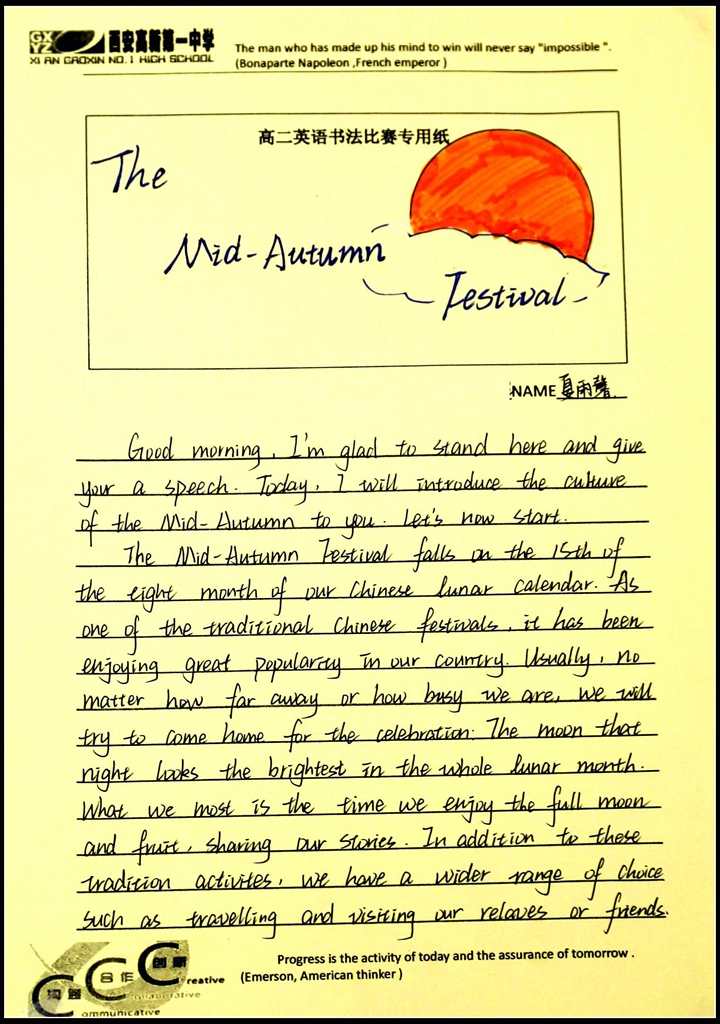 GX YZ 西安高新第一中学
XI AN GAOXIN NO.1 HIGH SCHOOL
The man who has made up his mind to win will never say "impossible ".
(Bonaparte Napoleon ,French emperor )
高二英语书法比赛专用纸
The
Mid-Autumn
Festival
NAME 夏雨馨
Good morning, I'm glad to stand here and give
your a speech. Today, I will introduce the culture
of the Mid-Autumn to you. Let's now start.
The Mid-Autumn Festival falls on the 15th of
the eight month of our Chinese lunar calendar. As
one of the traditional Chinese festivals, it has been
enjoying great popularity in our country. Usually, no
matter how far away or how busy we are, we will
try to come home for the celebration. The moon that
night looks the brightest in the whole lunar month.
What we most is the time we enjoy the full moon
and fruit, sharing our stories. In addition to these
tradition activites, we have a wider range of choice
such as travelling and visiting our relaves or friends.
沟通 合作 创新
Communicative Collaborative Creative
Progress is the activity of today and the assurance of tomorrow .
(Emerson, American thinker )